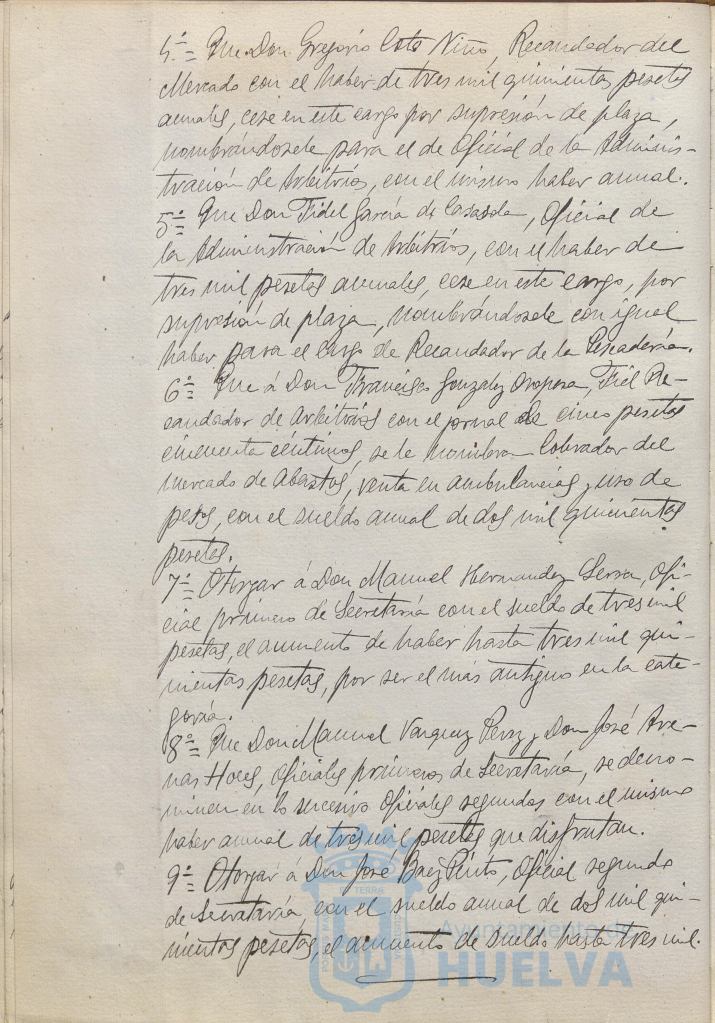 4.º = Que Don Gregorio Coto Niño, Recaudador del
Mercado con el haber de tres mil quinientas pesetas
anuales, cese en este cargo por supresión de plaza,
nombrándosele para el de Oficial de la Adminis-
tración de Arbitrios, con el mismo haber anual.
5.º = Que Don Fidel García de Casasola, Oficial de
la Administración de Arbitrios, con el haber de
tres mil pesetas anuales, cese en este cargo, por
supresión de plaza, nombrándosele con igual
haber para el cargo de Recaudador de la Pescadería.
6.º = Que á Don Francisco González Oropesa, Fiel Re-
caudador de Arbitrios con el jornal de cinco pesetas
cincuenta céntimos, se le nombra Cobrador del
Mercado de Abastos, venta en ambulancias y uso de
pesos, con el sueldo anual de dos mil quinientas
pesetas.
7.º = Otorgar á Don Manuel Hernandez Serra, Ofi-
cial primero de Secretaría con el sueldo de tres mil
pesetas, el aumento de haber hasta tres mil qui-
nientas pesetas, por ser el más antiguo en la cate-
goría.
8.º = Que Don Manuel Vazquez Perez y Don José Are-
nas Hoces, Oficiales primeros de Secretaría, se deno-
minen en lo sucesivo Oficiales segundos con el mismo
haber anual de tres mil pesetas que disfrutan.
9.º = Otorgar á Don José Baez Pinto, Oficial segundo
de Secretaría, con el sueldo anual de dos mil qui-
nientas pesetas, el aumento de sueldo hasta tres mil.
Ayuntamiento de
HUELVA